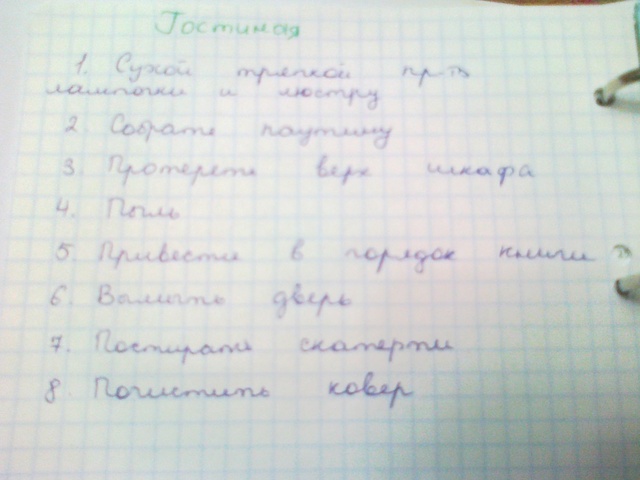 Гостиная
1. Сухой тряпкой пр-ть
лампочки и люстру
2 Собрать паутину
3. Протереть верх шкафа
4. Пыль
5. Привести в порядок книги
6. Вымыть дверь
7. Постирать скатерти
8. Почистить ковер